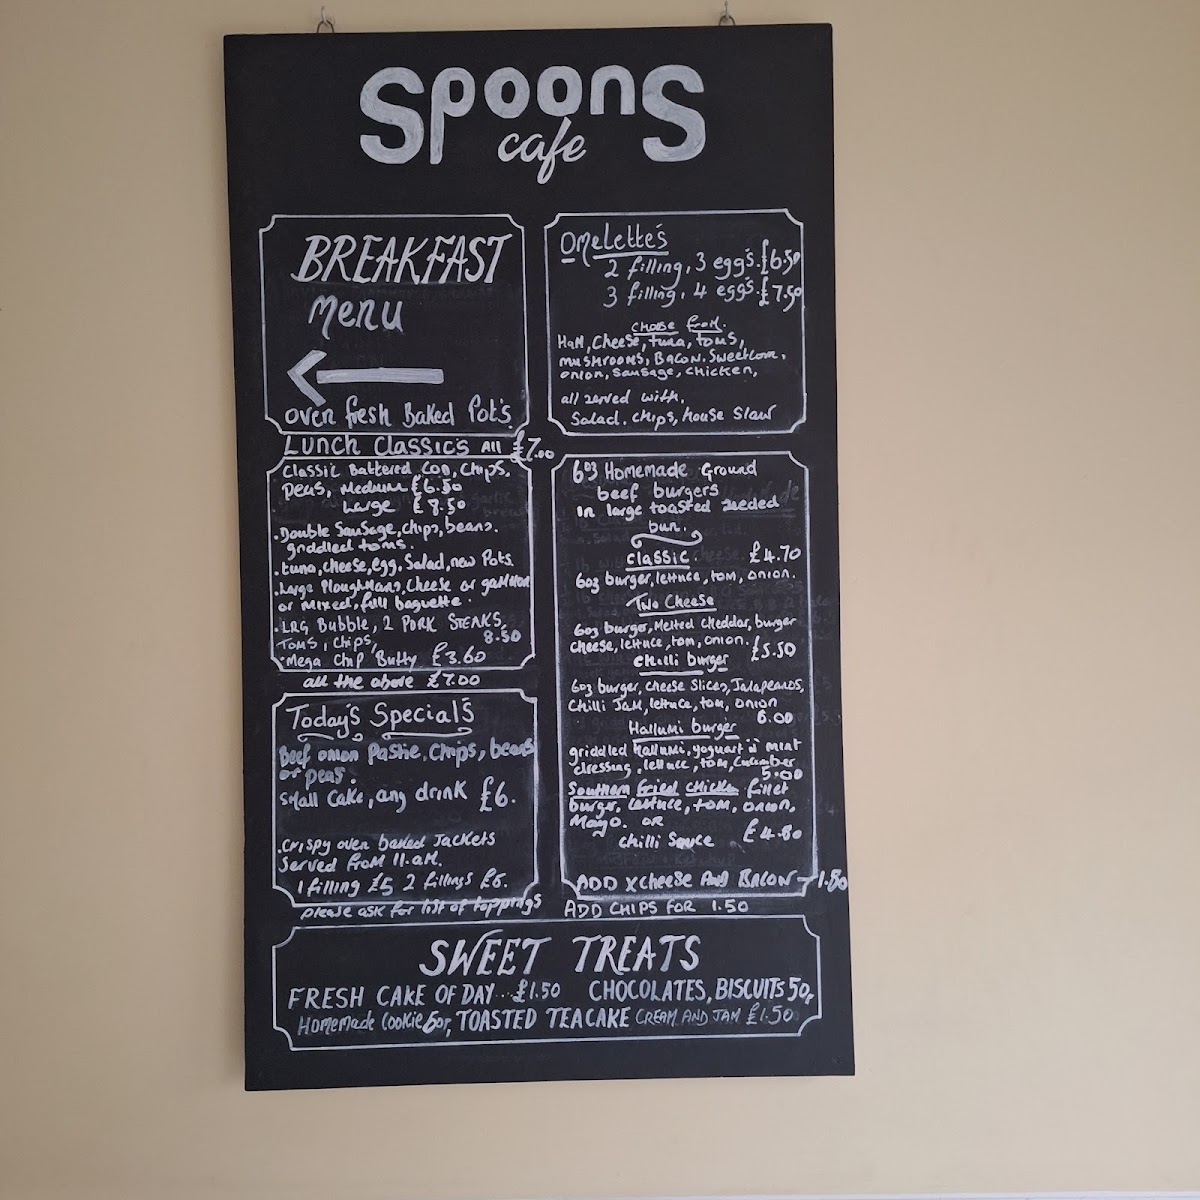 Spoons
cafe
BREAKFAST
Menu
oven fresh Baked Pot's
Lunch Classic's All £7.00
Classic Battered Cod, Chips,
Peas, Medium £6.50
Large £8.50
. Double Sausage, chips, beans.
griddled toms.
. tuna, cheese, egg. Salad, new Pots.
. Large Ploughmans, Cheese or gammon
or mixed, full baguette.
. LRG Bubble, 2 PORK STEAKS,
TOMS, Chips, 8.50
. Mega Chip Butty £3.60
all the above £7.00
Today's Special's
Beef onion Pastie, Chips, beans
or peas.
Small Cake, any drink £6.
. Crispy oven baked Jackets
Served from 11.am.
1 filling £5 2 fillings £6.
please ask for list of toppings
Omelette's
2 filling, 3 egg's. £6.50
3 filling, 4 egg's. £7.50
choose from.
Ham, Cheese, tuna, toms,
mushrooms, Bacon. Sweetcorn,
onion, sausage, chicken,
all served with.
Salad. chips, house slaw
6oz Homemade Ground
beef burgers
in large toasted seeded
bun.
Classic. £4.70
6oz burger, lettuce, tom, onion.
Two Cheese
6oz burger, Melted cheddar, burger
cheese, lettuce, tom, onion. £5.50
Chilli burger
6oz burger, cheese slices, Jalapeanos,
Chilli Jam, lettuce, tom, onion
6.00
Hallumi burger
griddled Hallumi, yogurt n mint
dressing, lettuce, tom, cucumber
5.00
Southern fried chicken fillet
burger, lettuce, tom, onion,
Mayo. OR
chilli sauce £4.80
ADD x cheese AND BACON - 1.80
ADD CHIPS FOR 1.50
SWEET TREATS
FRESH CAKE OF DAY... £1.50 CHOCOLATES, BISCUITS 50p
Homemade Cookie 60p, TOASTED TEACAKE CREAM AND JAM £1.50